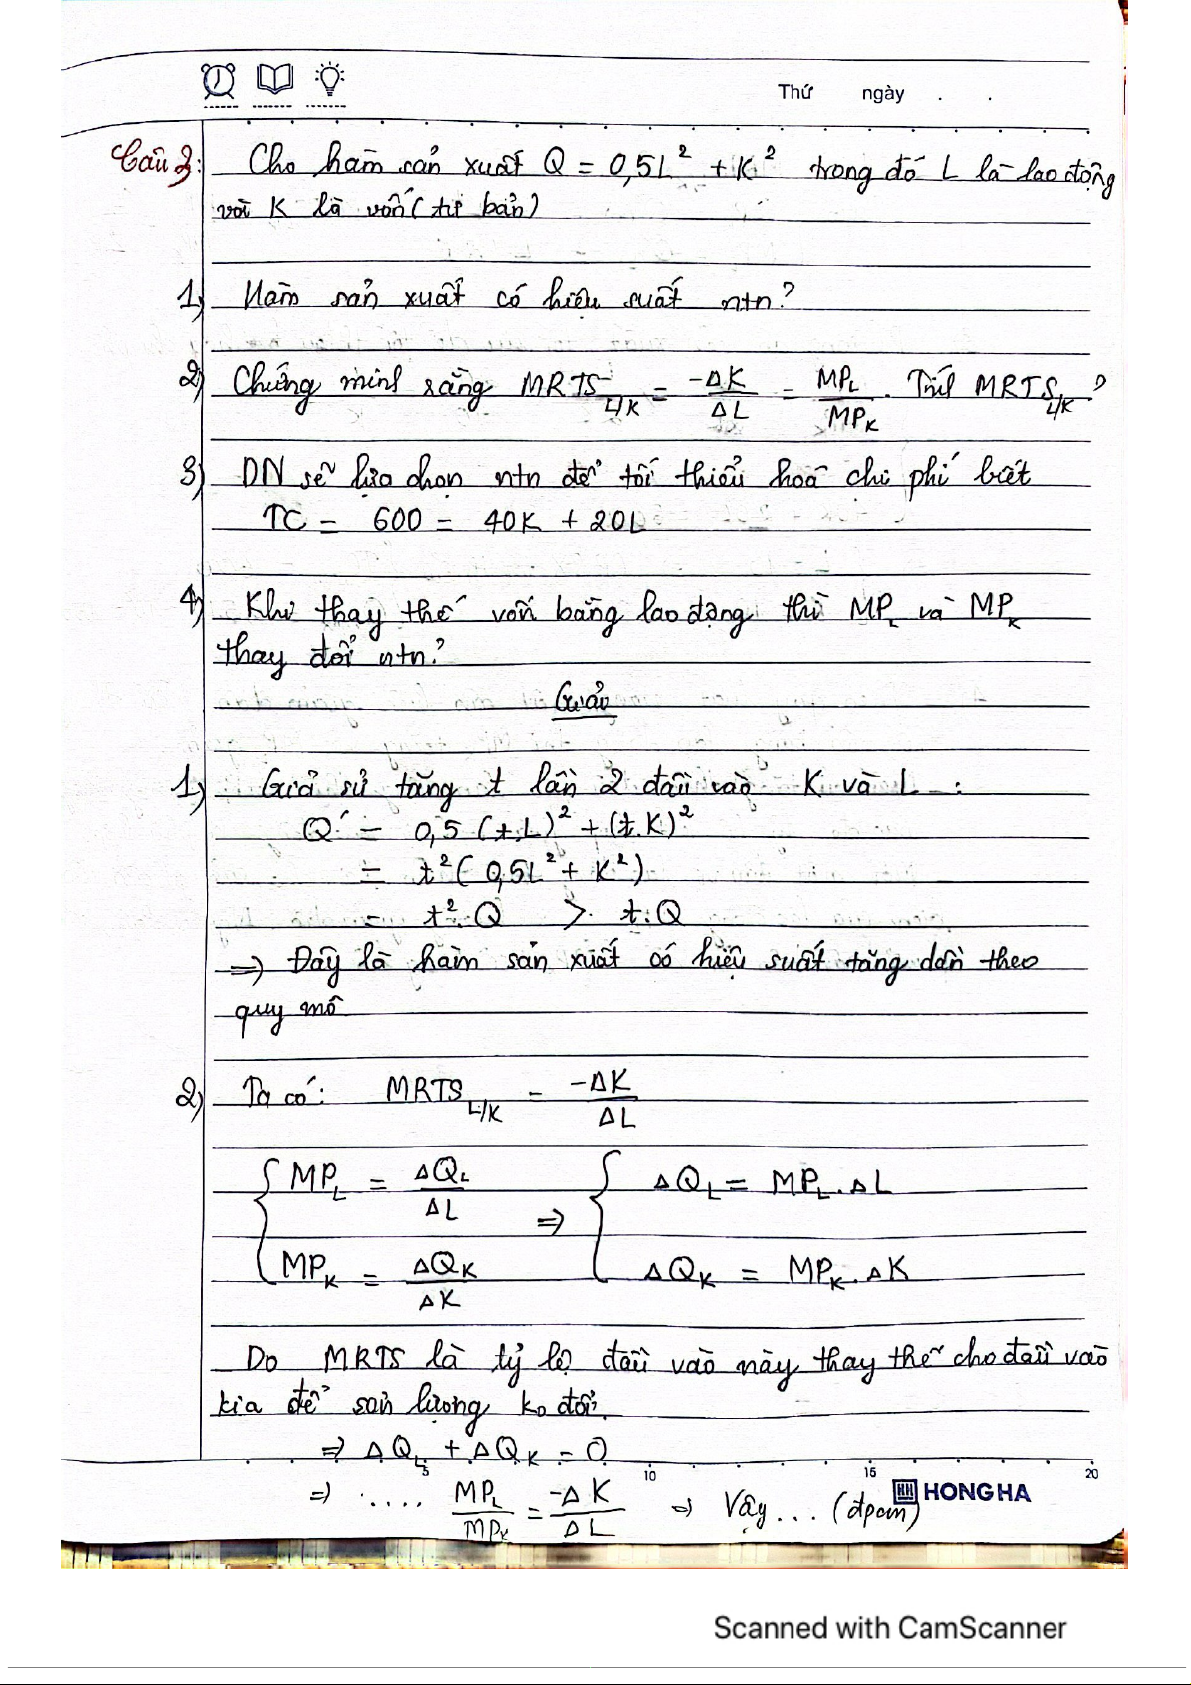 Thứ ngày . .
Câu 3: Cho hàm sản xuất Q = 0,5L² + K² trong đó L là lao động
với K là vốn (tư bản)
1) Hàm sản xuất có hiệu suất ntn?
2) Chứng minh rằng MRTS_{L/K} = -ΔK/ΔL = MP_L/MP_K. Tính MRTS_{L/K}?
3) DN sẽ lựa chọn ntn để tối thiểu hoá chi phí biết
TC = 600 = 40K + 20L
4) Khi thay thế vốn bằng lao động thì MP_L và MP_K
thay đổi ntn?
Giải
1) Giả sử tăng t lần 2 đầu vào K và L :
Q' = 0,5 (t.L)² + (t.K)²
= t² (0,5L² + K²)
= t².Q > t.Q
=> Đây là hàm sản xuất có hiệu suất tăng dần theo
quy mô
2) Ta có: MRTS_{L/K} = -ΔK/ΔL
{ MP_L = ΔQ_L/ΔL => { ΔQ_L = MP_L.ΔL
MP_K = ΔQ_K/ΔK ΔQ_K = MP_K.ΔK
Do MRTS là tỷ lệ đầu vào này thay thế cho đầu vào
kia để sản lượng ko đổi.
=> ΔQ_L + ΔQ_K = 0
5 10 15 20
=> .... MP_L/MP_K = -ΔK/ΔL => Vậy... (đpcm)
HH HONG HA
Scanned with CamScanner